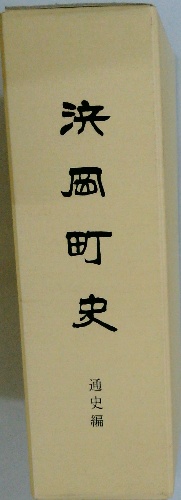 浜岡町史
通史編